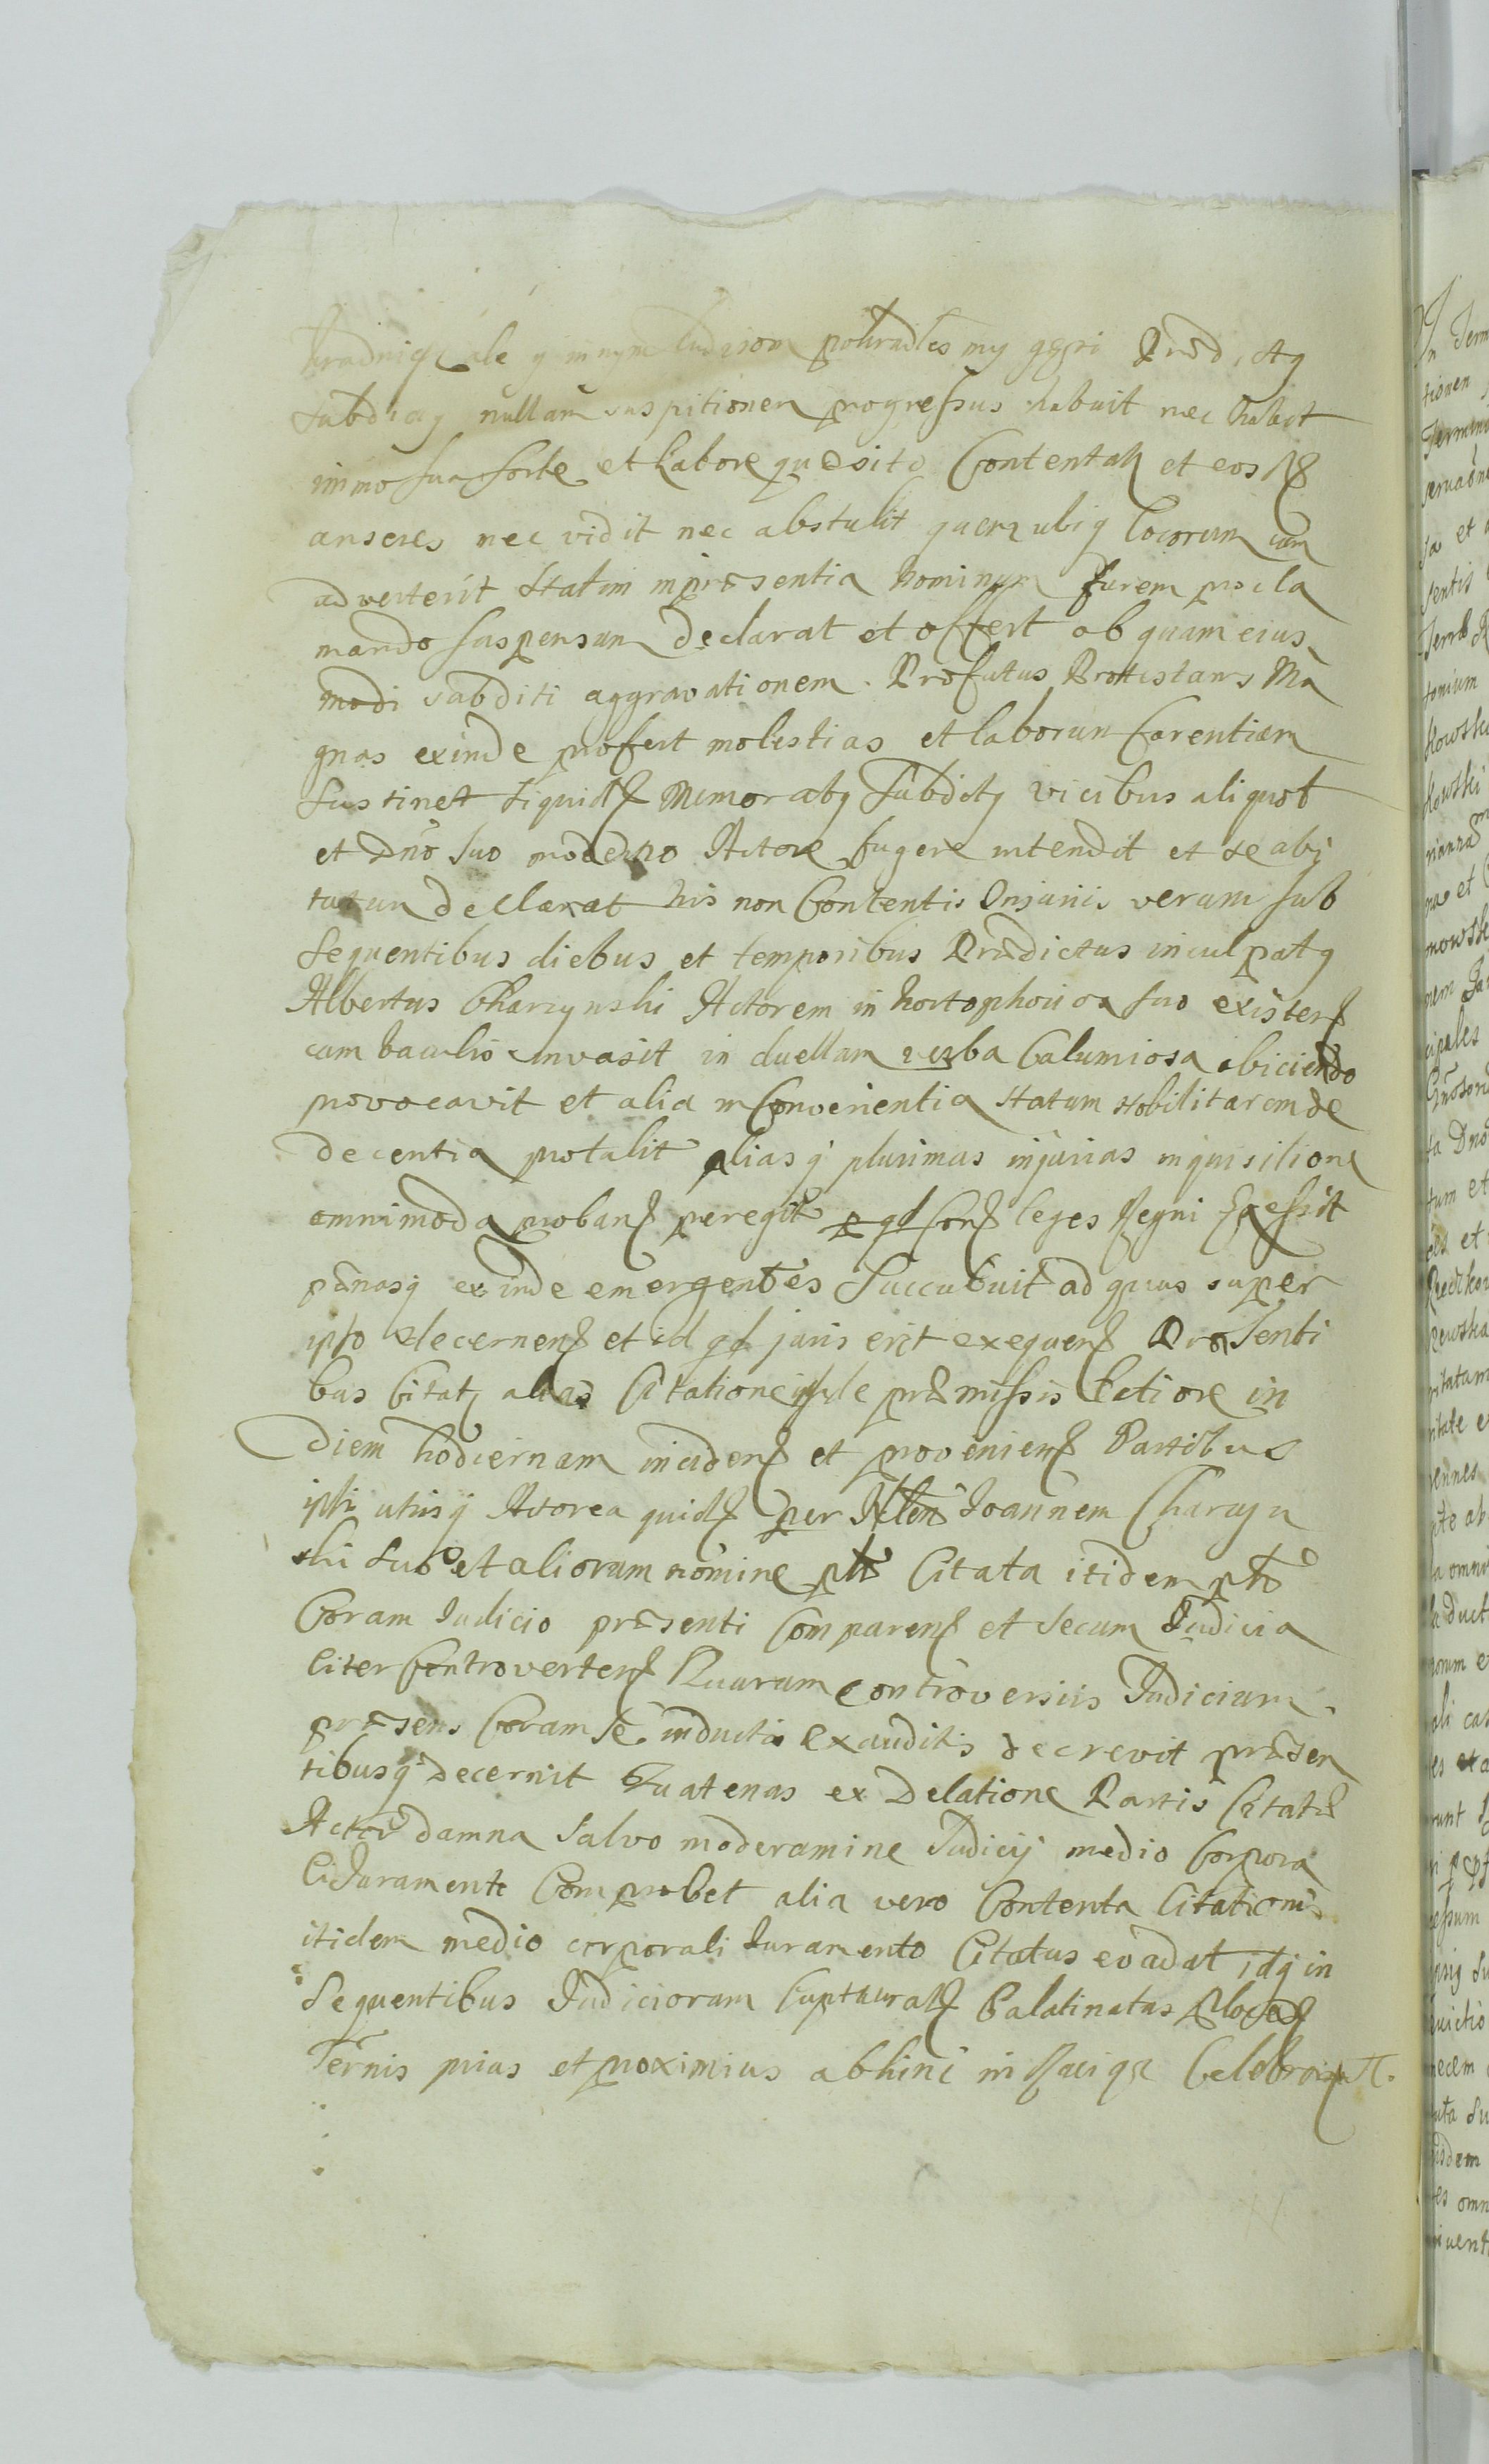 ale y innym ludziom pokradłes my gęsi Præd. Atq
Subditq nullam suspitionem progressus habuit nec habet
immo sua sorte et labore quæsito Contentatʒ et eos
anseres nec vidit nec abstulit quem ubiq locorum cum
adverterit Statim in præsentia hominum furem procla
mando suspensum declarat et offert ob quam eius
modi subditi aggravationem. Profatus Protestans Ma
gnas exinde profert molestias et laborum Carentiam
Sustinet siquidʒ Memoratq Subditq vicibus aliquot
et Dno suo moderno Actore fugere intendit et se abi
turum declarat his non Contentis Injuriis verum sub
sequentibus diebus et temporibus Prædictus inculpatq
Albertus Charzynski Actorem in suo existenʒ
cum baculo invasit in duellum verba Calumiosa obiciendo
provocavit et alia inConvenientia statum Nobilitarem de
decentia protulit aliasq plurimas injurias inquisitione
omnimoda probanʒ peregit p qd Conʒ leges Regni Egressit
pænasq exinde emergentes Succubuit ad quas super
ipso decernenʒ et id qd juris erit exequenʒ Præsenti
bus Citatq alias Citatione inde præmissis latiore in
diem hodiernam incidenʒ et provenienʒ Partibus
ipsi utrisq Actorea quidʒ per Joannem Charzyn
ski suo et aliorum nomine ptt Citata itidem ptt
Coram Iudicio præsenti Comparenʒ et secum Iudicia
liter Controvertenʒ Quarum controversiis Iudicium
præsens Coram se inductis exauditis decrevit præsen
tibusq decernit Quatenus ex Delatione Partis Citatæ
Actor damna salvo moderamine Iudicij medio Corpora
li Juramento Comprobet alia vero Contenta Citationis
itidem medio corporali Iuramento Citatus evadat, idq in
sequentibus Iudiciorum Capturalʒ Palatinatus Plocenʒ
Ternis prius et proximius abhinc in Raciąz Celebran